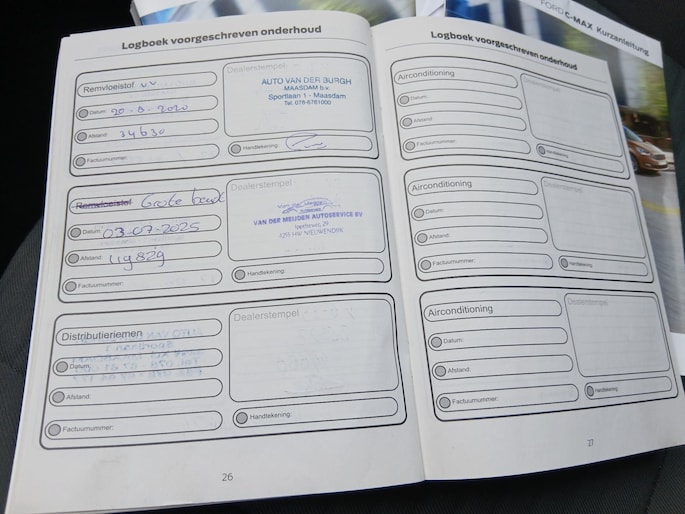 FORD C-MAX Kurzanleitung
Logboek voorgeschreven onderhoud
Remvloeistof v.v
Datum: 20-8-2020
Afstand: 34630
Factuurnummer:
Dealerstempel
AUTO VAN DER BURGH
MAASDAM b.v.
Sportlaan 1 - Maasdam
Tel. 078-6761000
Handtekening:
Remvloeistof Grote beurt
Datum: 03-07-2025
Afstand: 119829
Factuurnummer:
Dealerstempel:
VAN DER MEIJDEN AUTOSERVICE BV
NIEUWENDIJK
Handtekening:
Distributieriemen
Datum:
Afstand:
Factuurnummer:
Dealerstempel
Handtekening:
26
Logboek voorgeschreven onderhoud
Airconditioning
Datum:
Afstand:
Factuurnummer:
Dealerstempel
Handtekening:
Airconditioning
Datum:
Afstand:
Factuurnummer:
Dealerstempel
Handtekening:
Airconditioning
Datum:
Afstand:
Factuurnummer:
Dealerstempel
Handtekening:
27